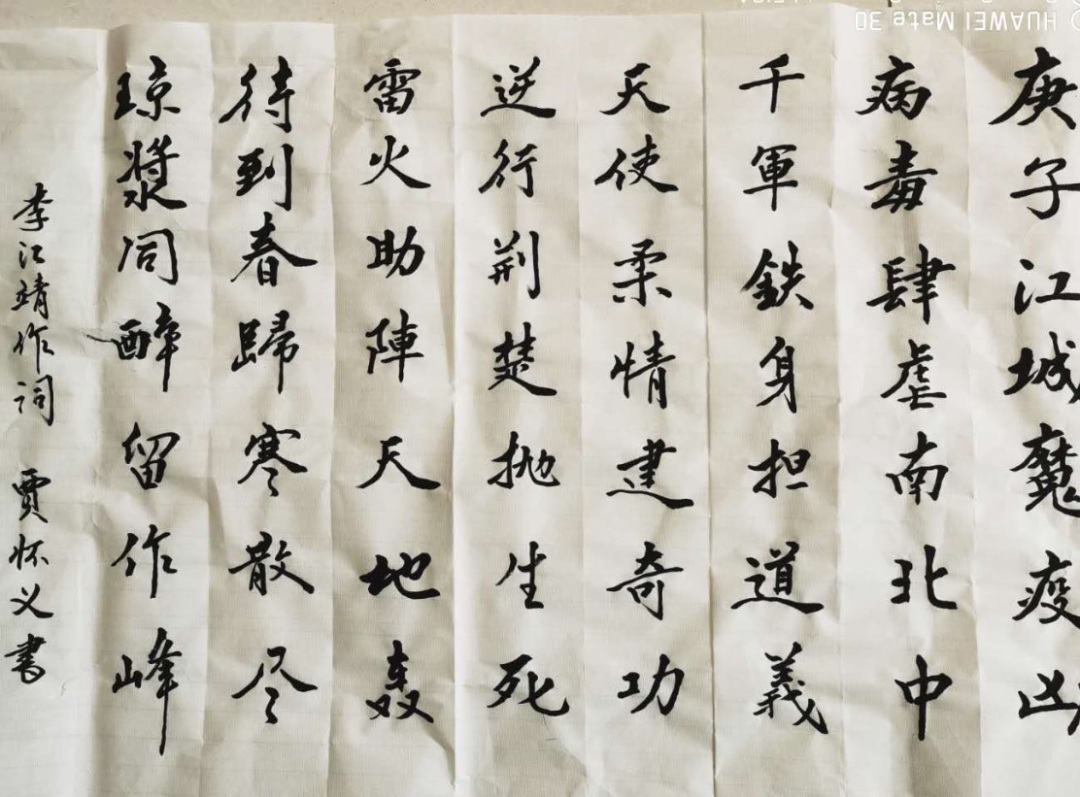 庚子江城魔疫凶
病毒肆虐南北中
千軍鉄身担道義
天使柔情建奇功
逆行荆楚抛生死
雷火助陣天地轰
待到春歸寒散尽
琼漿同醉留作峰
李江靖作词 贾怀义書
HUAWEI Mate 30